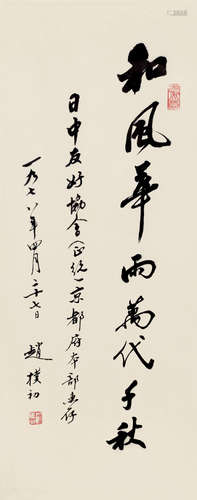 和風華雨萬代千秋
日中友好協會(正統)京都府本部惠存
一九七八年四月二十七日
趙樸初